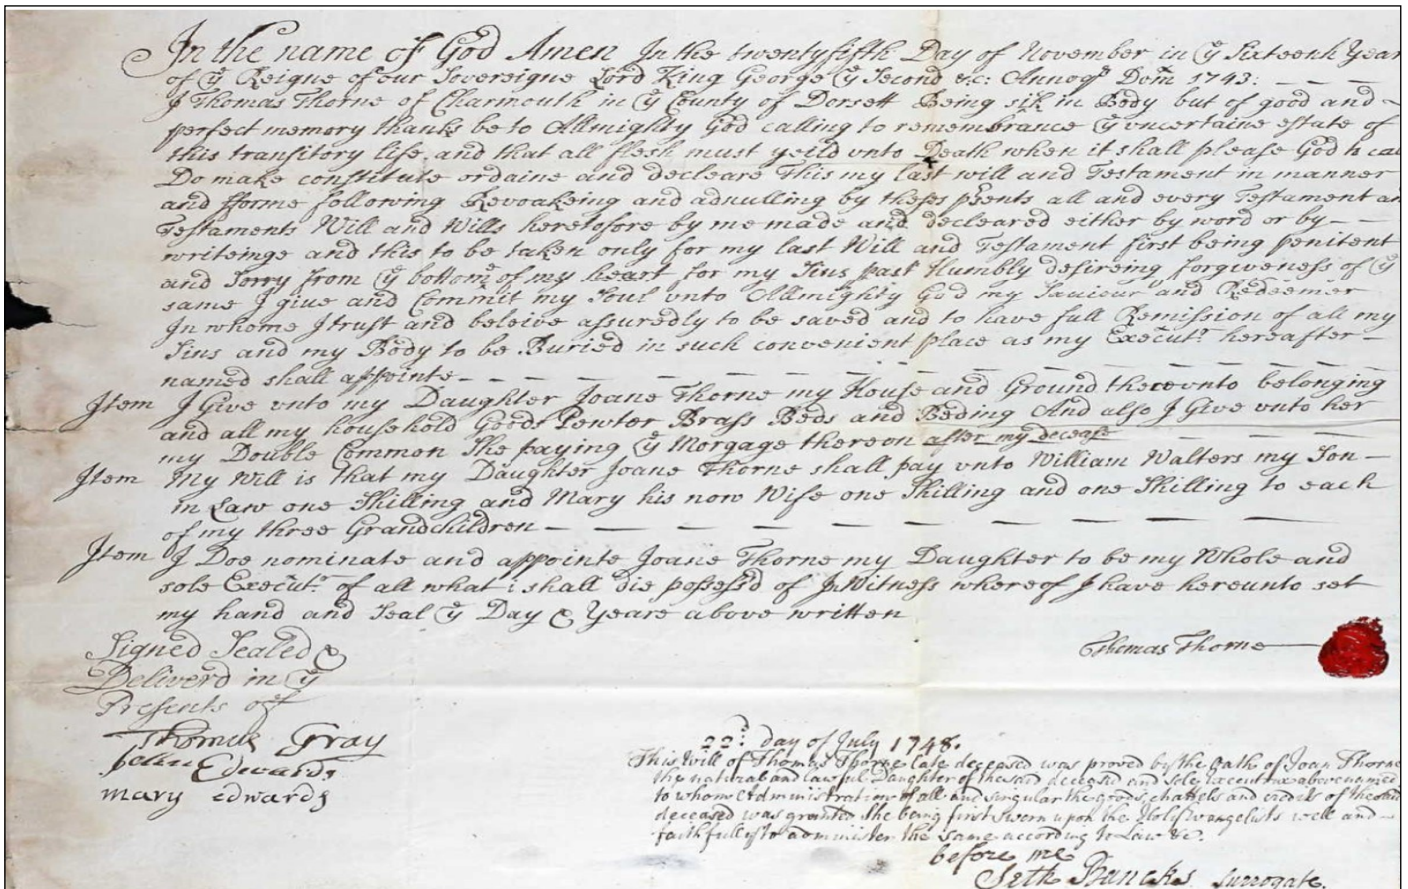 In the name of God Amen In the twentyfifth Day of November in ye Sixteenth Year
of ye Reigne of our Sovereigne Lord King George ye Second &c: Annoqe Dom 1743:
I Thomas Thorne of Charmouth in ye County of Dorsett Being sik in Body but of good and
perfect memory thanks be to Allmighty God calling to remembrance ye uncertaine estate of
this transitory life, and that all flesh must yeild vnto Death when it shall please God to cal
Do make constitute ordaine and decleare This my last will and Testament in manner
and fforme following Revoakeing and adnulling by theses prents all and every Testament an
Testaments Will and Wills heretofore by me made and decleared either by word or by
writeinge and this to be taken only for my last Will and Testament first being penitent
and Sorry from ye bottome of my heart for my Sins past Humbly desireing forgiveness of ye
same I giue and Commit my Soul vnto Allmighty God my Saviour and Redeemer
In whome I trust and beleive assuredly to be saved and to have full Remission of all my
Sins and my Body to be Buried in such convenient place as my Execut.r hereafter
named shall appointe
Item I Give vnto my Daughter Joane Thorne my House and Ground therevnto belonging
and all my household Goods Pewter Brass Beds and Beding And also I Give vnto her
my Double Common She paying ye Morgage thereon after my decease
Item My Will is that my Daughter Joane Thorne shall pay vnto William Walters my Son
in Law one Shilling and Mary his now Wife one Shilling and one Shilling to each
of my three Grandchildren
Item I Doe nominate and appointe Joane Thorne my Daughter to be my Whole and
sole Execut.r of all what i shall die possess'd of In Witness whereof I have hereunto set
my hand and Seal ye Day & Yeare above written
Signed Sealed &
Deliverd in ye
Presents off
Thomas Thorne
Thomas Gray
John Edwards
mary edwards
22d: day of July 1748.
This Will of Thomas Thorne late deceased was proved by the Oath of Joan Thorne
the natural and lawful Daughter of the said deceased and sole Executrix above named
to whom Administration of all and singular the goods, chattels and credits of the said
deceased was granted She being first Sworn upon the Holy Evangelists well and
faithfully to administer the same according to Law &c.
before me
Seth Banckes Surrogate